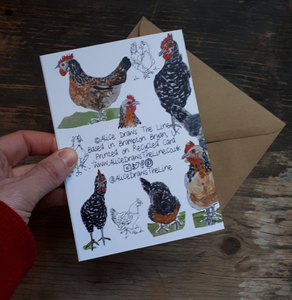 ©Alice Draws The Line
Based in Brampton Bryan,
Printed on Recycled Card
www.AliceDrawsTheLine.co.uk
@AliceDrawsTheLine